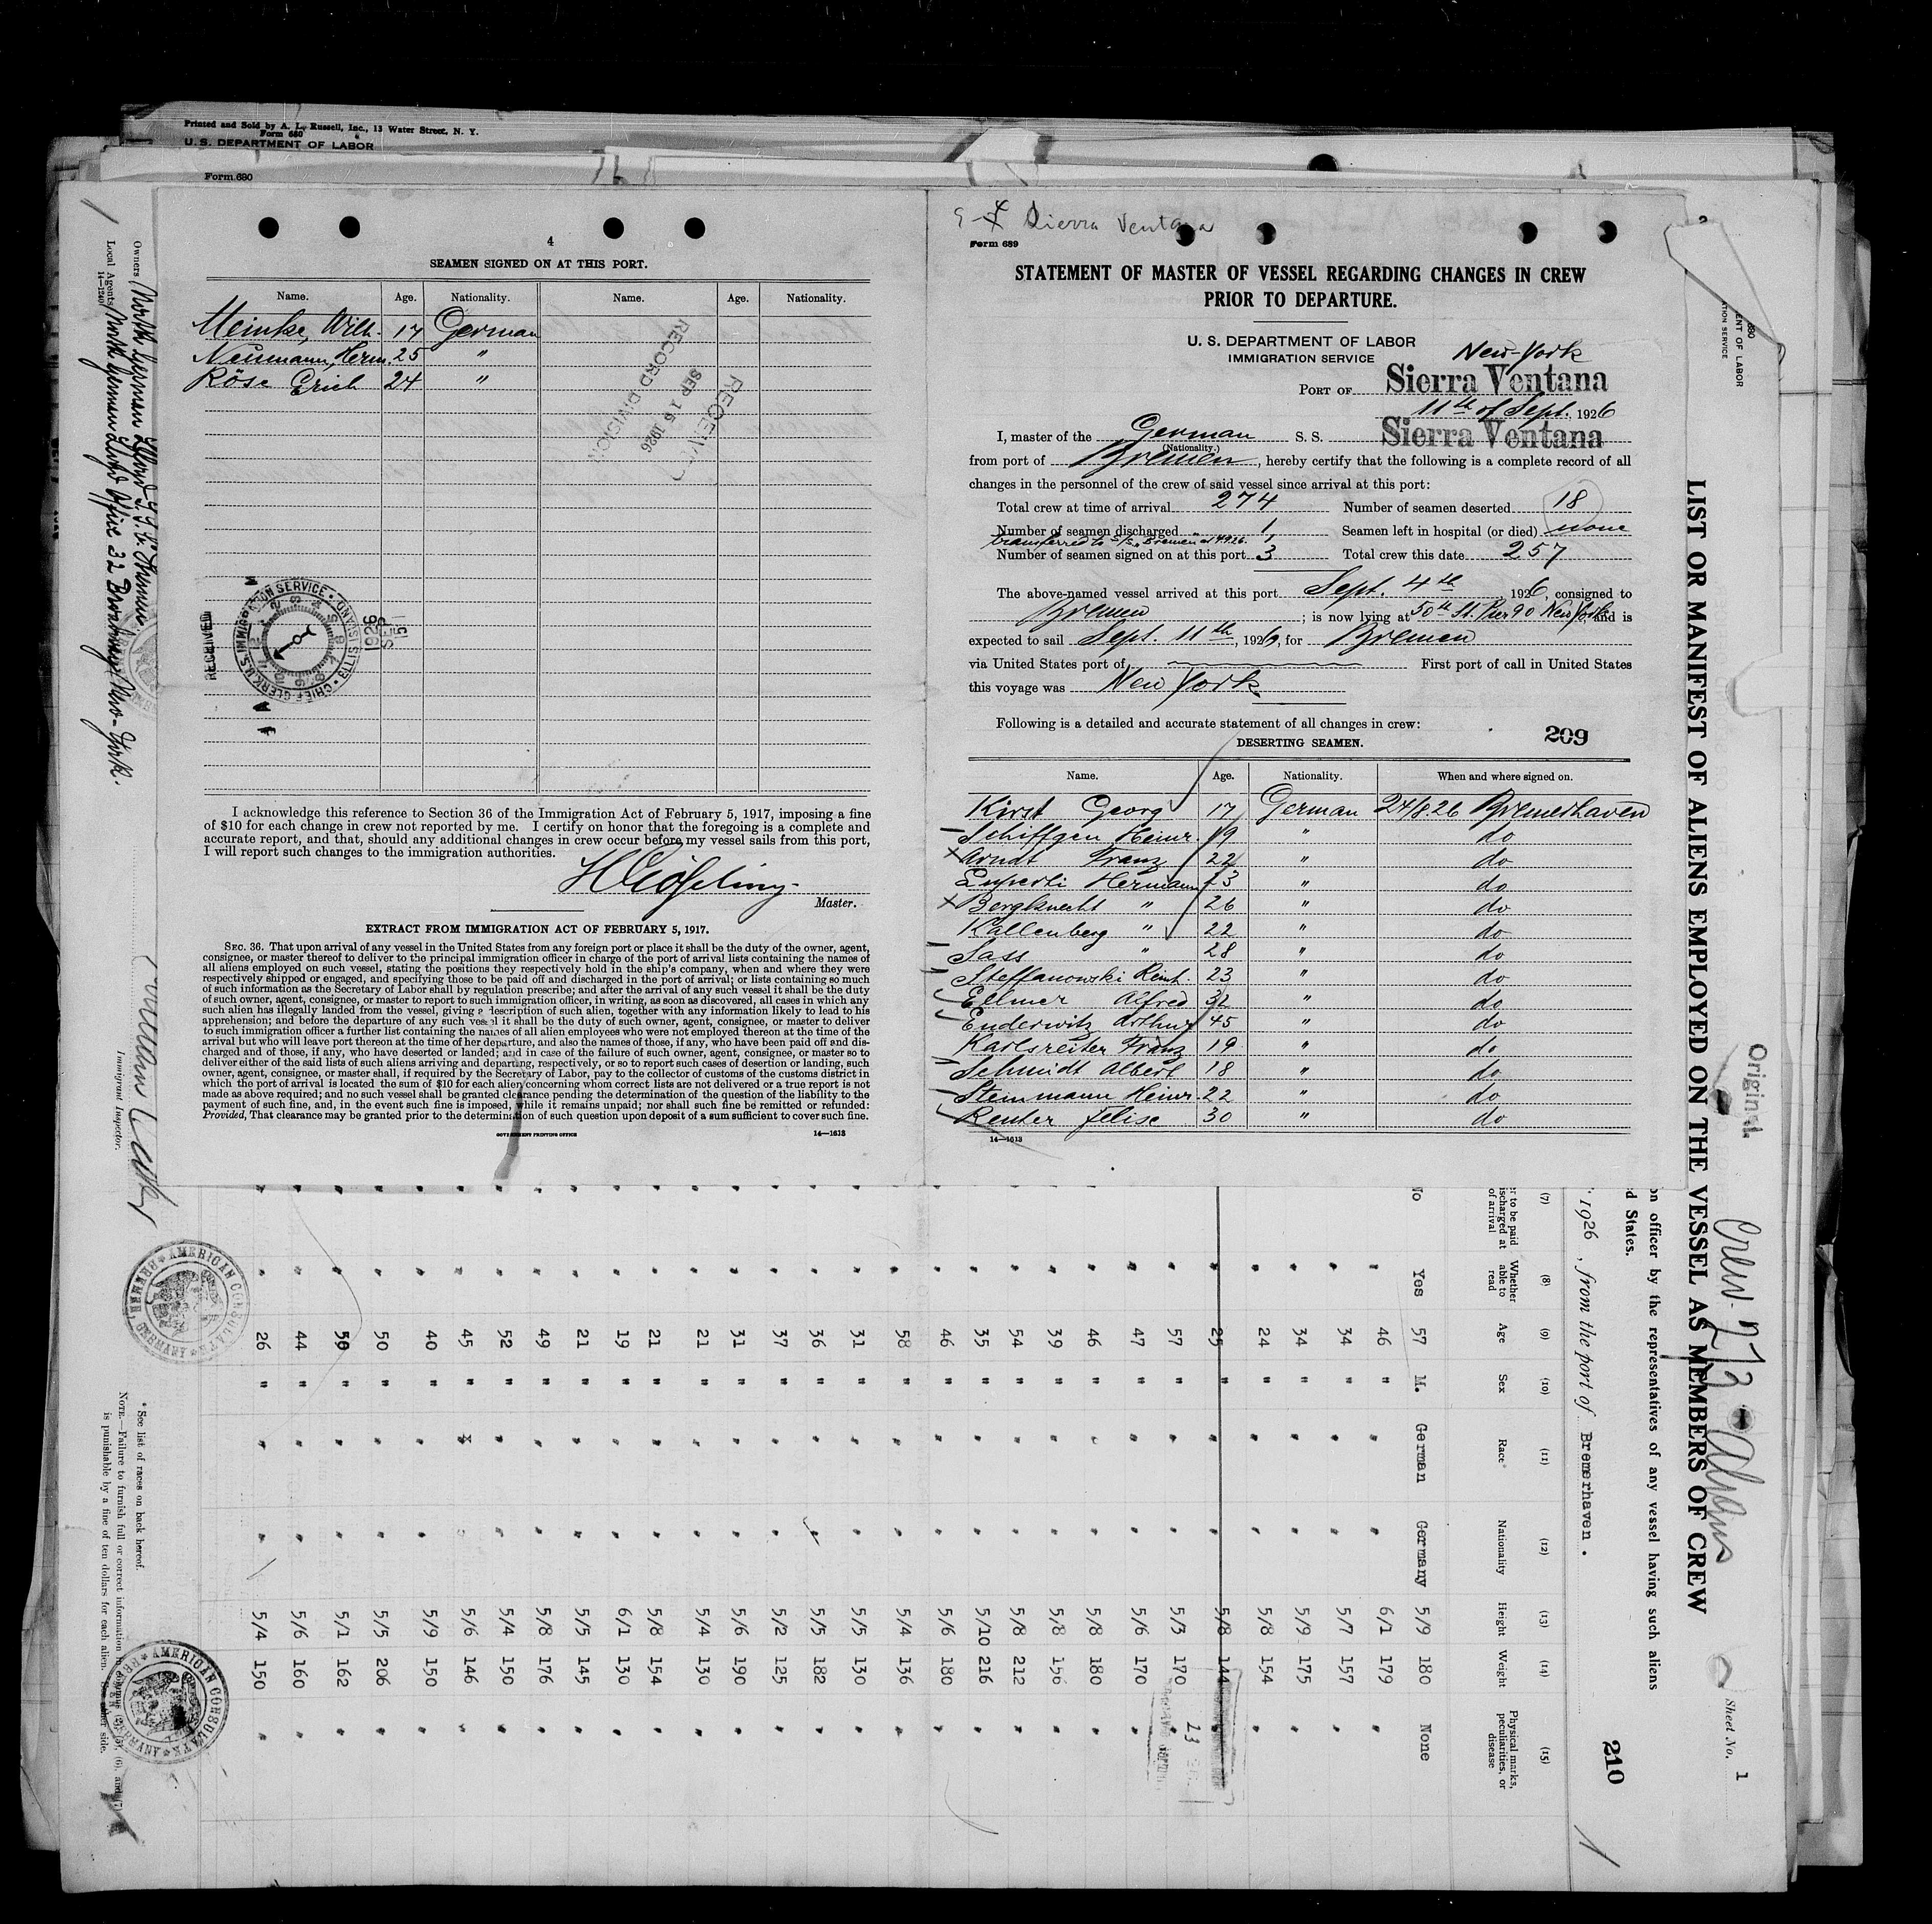 Printed and Sold by A. L. Russell, Inc., 13 Water Street, N. Y.
Form 680
U. S. DEPARTMENT OF LABOR
Form 680
4
SEAMEN SIGNED ON AT THIS PORT.
Name. Age. Nationality. Name. Age. Nationality.
Meinke, Wilh. 17 German
Neumann, Herm. 25 "
Röse Erich 24 "
RECEIVED
SEP 15 1926
RECORD DIVISION
RECEIVED
U.S. IMMIGRATION SERVICE
CHIEF CLERK
ELLIS ISLAND
1926
SEP
15
I acknowledge this reference to Section 36 of the Immigration Act of February 5, 1917, imposing a fine
of $10 for each change in crew not reported by me. I certify on honor that the foregoing is a complete and
accurate report, and that, should any additional changes in crew occur before my vessel sails from this port,
I will report such changes to the immigration authorities.
Master.
EXTRACT FROM IMMIGRATION ACT OF FEBRUARY 5, 1917.
SEC. 36. That upon arrival of any vessel in the United States from any foreign port or place it shall be the duty of the owner, agent,
consignee, or master thereof to deliver to the principal immigration officer in charge of the port of arrival lists containing the names of
all aliens employed on such vessel, stating the positions they respectively hold in the ship's company, when and where they were
respectively shipped or engaged, and specifying those to be paid off and discharged in the port of arrival; or lists containing so much
of such information as the Secretary of Labor shall by regulation prescribe; and after the arrival of any such vessel it shall be the duty
of such owner, agent, consignee, or master to report to such immigration officer, in writing, as soon as discovered, all cases in which any
such alien has illegally landed from the vessel, giving a description of such alien, together with any information likely to lead to his
apprehension; and before the departure of any such vessel it shall be the duty of such owner, agent, consignee, or master to deliver
to such immigration officer a further list containing the names of all alien employees who were not employed thereon at the time of the
arrival but who will leave port thereon at the time of her departure, and also the names of those, if any, who have been paid off and dis-
charged and of those, if any, who have deserted or landed; and in case of the failure of such owner, agent, consignee, or master so to
deliver either of the said lists of such aliens arriving and departing, respectively, or so to report such cases of desertion or landing, such
owner, agent, consignee, or master shall, if required by the Secretary of Labor, pay to the collector of customs of the customs district in
which the port of arrival is located the sum of $10 for each alien concerning whom correct lists are not delivered or a true report is not
made as above required; and no such vessel shall be granted clearance pending the determination of the question of the liability to the
payment of such fine, and, in the event such fine is imposed, while it remains unpaid; nor shall such fine be remitted or refunded:
Provided, That clearance may be granted prior to the determination of such question upon deposit of a sum sufficient to cover such fine.
GOVERNMENT PRINTING OFFICE 14—1613
Sierra Ventana
Form 689
STATEMENT OF MASTER OF VESSEL REGARDING CHANGES IN CREW
PRIOR TO DEPARTURE.
U. S. DEPARTMENT OF LABOR
IMMIGRATION SERVICE
New-York
PORT OF Sierra Ventana
11th of Sept. 1926
I, master of the German S. S. Sierra Ventana
(Nationality.)
from port of Bremen, hereby certify that the following is a complete record of all
changes in the personnel of the crew of said vessel since arrival at this port:
Total crew at time of arrival 274 Number of seamen deserted 18
Number of seamen discharged 1 Seamen left in hospital (or died) none
transferred to S/S "Bremen" at 4.9.26. 1
Number of seamen signed on at this port 3 Total crew this date 257
The above-named vessel arrived at this port Sept. 4th 1926, consigned to
Bremen; is now lying at 50th St. Pier 90 New York, and is
expected to sail Sept. 11th, 1926, for Bremen
via United States port of First port of call in United States
this voyage was New York
Following is a detailed and accurate statement of all changes in crew: 209
DESERTING SEAMEN.
Name. Age. Nationality. When and where signed on.
Kirst Georg 17 German 24/8.26 Bremerhaven
Schiffgen Heinr. 19 " do
Arndt Franz 22 " do
Hermann 23 " do
Bergknecht " 26 " do
Kallenberg " 22 " do
Sass " 28 " do
Steffanowski Reinh. 23 " do
Ellmer Alfred 32 " do
Enderwitz Arthur 45 " do
Karlsreiter Franz 19 " do
Schmidt Albert 18 " do
Steinmann Heinr. 22 " do
Reuter Felise 30 " do
14—1613
Owners North German Lloyd S.S. Co. Bremen
Local Agents North German Lloyd Office 32 Broadway New-York.
14—1240
Immigrant Inspector.
AMERICAN CONSULATE
BREMEN, GERMANY
AMERICAN CONSULATE
BREMEN, GERMANY
* See list of races on back hereof.
NOTE.—Failure to furnish full or correct information in columns (2), (5), (6), and (7)
is punishable by a fine of ten dollars for each alien. See other side.
Original
Crew 273 Aliens
Sheet No. 1
LIST OR MANIFEST OF ALIENS EMPLOYED ON THE VESSEL AS MEMBERS OF CREW
on officer by the representatives of any vessel having such aliens
d States.
210
1926, from the port of Bremerhaven.
(7) (8) (9) (10) (11) (12) (13) (14) (15)
er to be paid
discharged at
of arrival
Whether able to read
Age
Sex
Race*
Nationality
Height
Weight
Physical marks, peculiarities, or disease
No Yes 57 M. German Germany 5/9 180 None
" 46 " " " 6/1 179 "
" 34 " " " 5/7 157 "
" 34 " " " 5/9 175 "
" 24 " " " 5/8 154 "
" 25 " " " 5/8 144 "
" 57 " " " 5/3 170 "
" 47 " " " 5/6 170 "
" 46 " " " 5/8 180 "
" 39 " " " 5/8 156 "
" 54 " " " 5/8 212 "
" 35 " " " 5/10 216 "
" 46 " " " 5/6 180 "
" 58 " " " 5/4 136 "
" 31 " " " 5/5 130 "
" 36 " " " 5/5 182 "
" 37 " " " 5/2 125 "
" 31 " " " 5/6 190 "
" 21 " " " 5/4 130 "
" 21 " " " 5/8 154 "
" 19 " " " 6/1 130 "
" 21 " " " 5/5 145 "
" 49 " " " 5/8 176 "
" 52 " " " 5/4 150 "
" 45 " " " 5/6 146 "
" 40 " " " 5/9 150 "
" 50 " " " 5/5 206 "
" 50 " " " 5/1 162 "
" 44 " " " 5/6 160 "
" 26 " " " 5/4 150 "